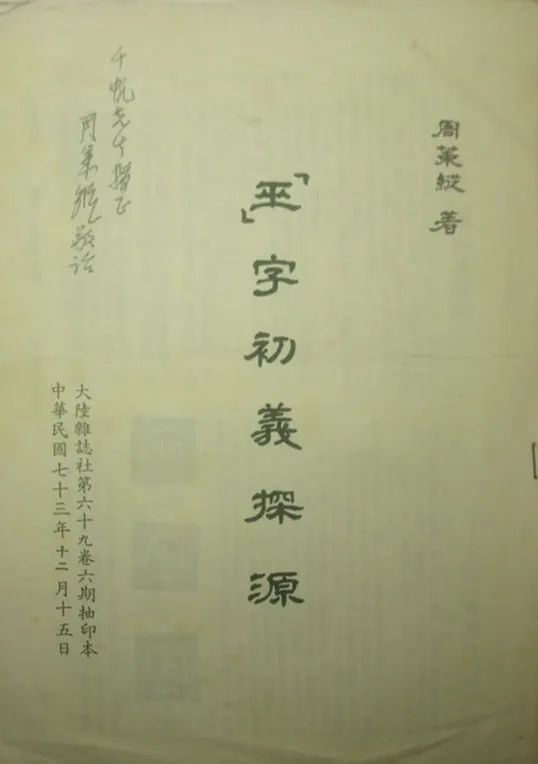 周策縱 著
「巫」字初義探源
千帆先生指正
周策縱敬詒
大陸雜誌社第六十九卷六期抽印本
中華民國七十三年十二月十五日